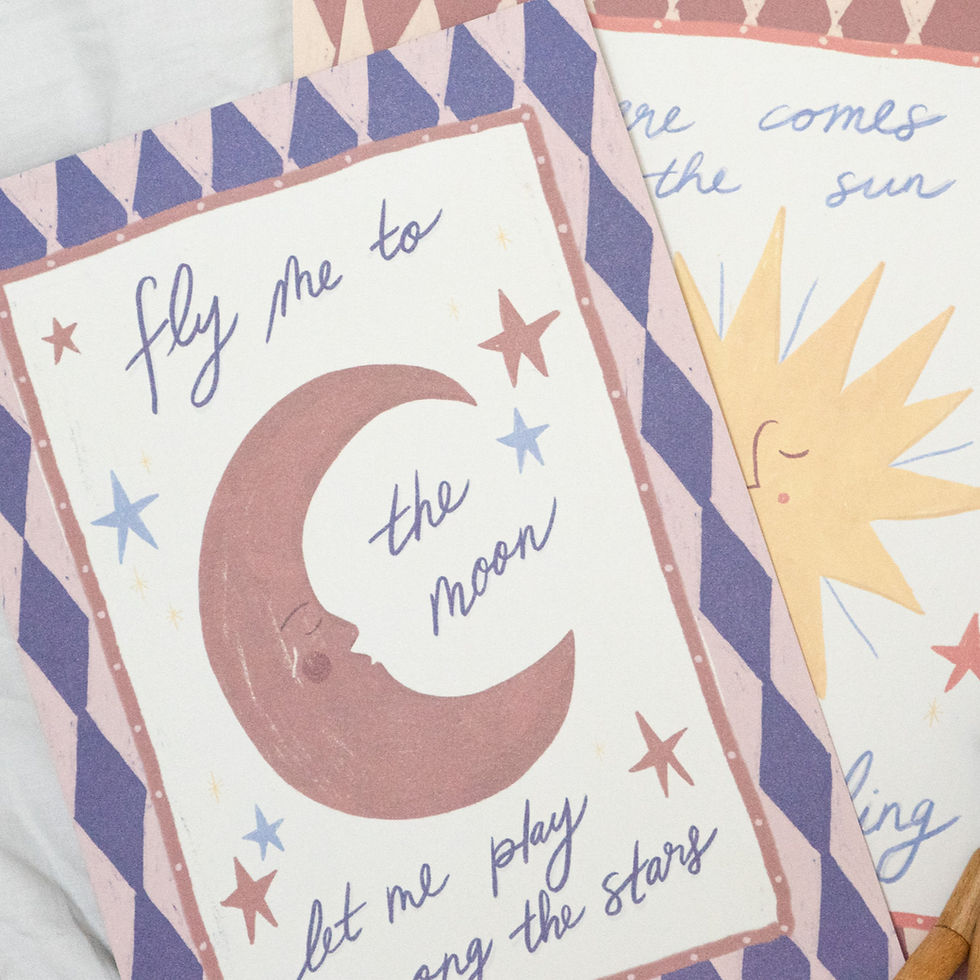 fly me to
the
moon
let me play
ong the stars
ere comes
the sun
ling